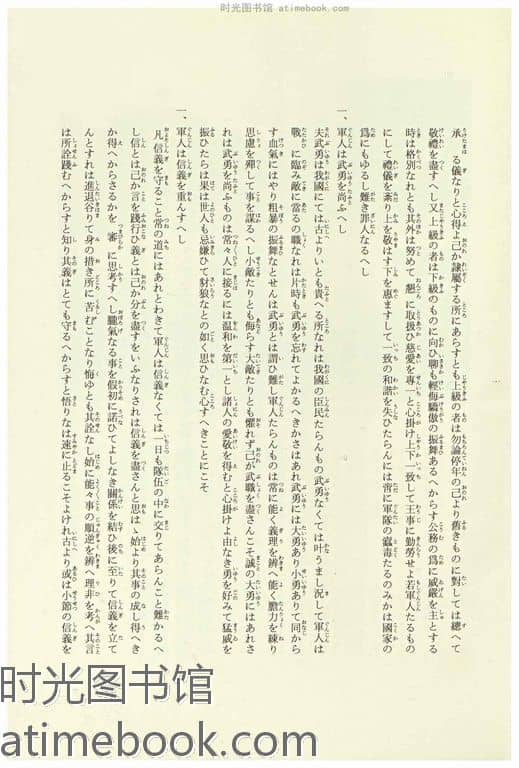 时光图书馆 - atimebook.com
承る儀なりと心得よ己か隷屬する所にあらすとも上級の者は勿論停年の己より舊きものに對しては總へて
敬禮を盡すへし又上級の者は下級のものに向ひ聊も輕侮驕傲の振舞あるへからす公務の爲に威嚴を主とする
時は格別なれとも其外は努めて懇に取扱ひ慈愛を專一と心掛け上下一致して王事に勤勞せよ若軍人たるもの
にして禮儀を紊り上を敬はす下を惠ますして一致の和諧を失ひたらんには啻に軍隊の蠧毒たるのみかは國家の
爲にもゆるし難き罪人なるへし
一、軍人は武勇を尚ふへし
夫武勇は我國にては古よりいとも貴へる所なれは我國の臣民たらんもの武勇なくては叶うまし況して軍人は
戰に臨み敵に當るの職なれは片時も武勇を忘れてよかるへきかさはあれ武勇には大勇あり小勇ありて同から
す血氣にはやり粗暴の振舞なとせんは武勇とは謂ひ難し軍人たらんものは常に能く義理を辨へ能く膽力を練り
思慮を殫して事を謀るへし小敵たりとも侮らす大敵たりとも懼れす己か武職を盡さんこそ誠の大勇にはあれさ
れは武勇を尚ふものは常々人に接るには温和を第一とし諸人の愛敬を得むと心掛けよ由なき勇を好みて猛威を
振ひたらは果は世人も忌嫌ひて豺狼なとの如く思ひなむ心すへきことにこそ
一、軍人は信義を重んすへし
凡信義を守ること常の道にはあれとわきて軍人は信義なくては一日も隊伍の中に交りてあらんこと難かるへ
し信とは己か言を踐行ひ義とは己か分を盡すをいふなりされは信義を盡さんと思はゝ始より其事の成し得へき
か得へからさるかを審に思考すへし朧氣なる事を假初に諾ひてよしなき關係を結ひ後に至りて信義を立て
んとすれは進退谷りて身の措き所に苦むことあり悔ゆとも其詮なし始に能々事の順逆を辨へ理非を考へ其言
は所詮踐むへからすと知り其義はとても守るへからすと悟りなは速に止るこそよけれ古より或は小節の信義を
时光图书馆
atimebook.com